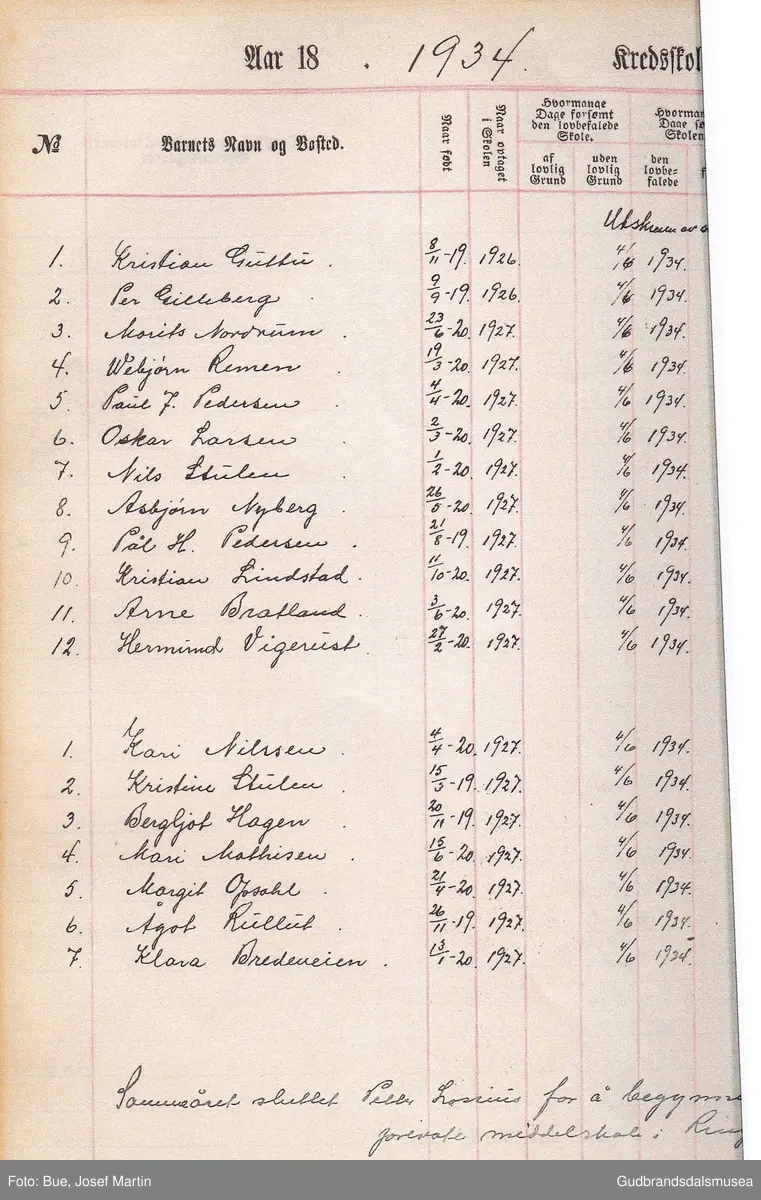 Aar 18 . 1934. Kredsskol
№ Barnets Navn og Bosted. Naar født Naar optaget i Skolen Hvormange Dage forsømt den lovbefalede Skole. af lovlig Grund uden lovlig Grund Hvorman Dage sø Skolen den lovbe- falede
Utskrevn av
1. Kristian Guttu . 8/11-19. 1926. 4/6 1934.
2. Per Gilleberg . 9/9-19. 1926. 4/6 1934.
3. Morits Nordrum . 23/6-20. 1927. 4/6 1934.
4. Webjørn Remen . 19/3-20. 1927. 4/6 1934.
5. Paul J. Pedersen . 4/4-20. 1927. 4/6 1934.
6. Oskar Larsen . 2/3-20. 1927. 4/6 1934.
7. Nils Stulen . 1/2-20. 1927. 4/6 1934.
8. Asbjørn Nyberg . 26/5-20. 1927. 4/6 1934.
9. Pål H. Pedersen . 21/8-19. 1927. 4/6 1934.
10. Kristian Lindstad . 11/10-20. 1927. 4/6 1934.
11. Arne Bratland . 3/6-20. 1927. 4/6 1934.
12. Hermund Vigerust . 27/2-20. 1927. 4/6 1934.
1. Kari Nilssen . 4/4-20. 1927. 4/6 1934.
2. Kristine Stulen . 15/3-19. 1927. 4/6 1934.
3. Bergljot Hagen . 20/11-19. 1927. 4/6 1934.
4. Mari Mathisen . 15/6-20. 1927. 4/6 1934.
5. Margit Opsahl . 21/4-20. 1927. 4/6 1934.
6. Ågot Rullut . 26/11-19. 1927. 4/6 1934.
7. Klara Bredeveien . 13/1-20. 1927. 4/6 1934.
Sammeåret sluttet Petter Lossius for å begynne
private middelskole i Ring
Foto: Bue, Josef Martin Gudbrandsdalsmusea